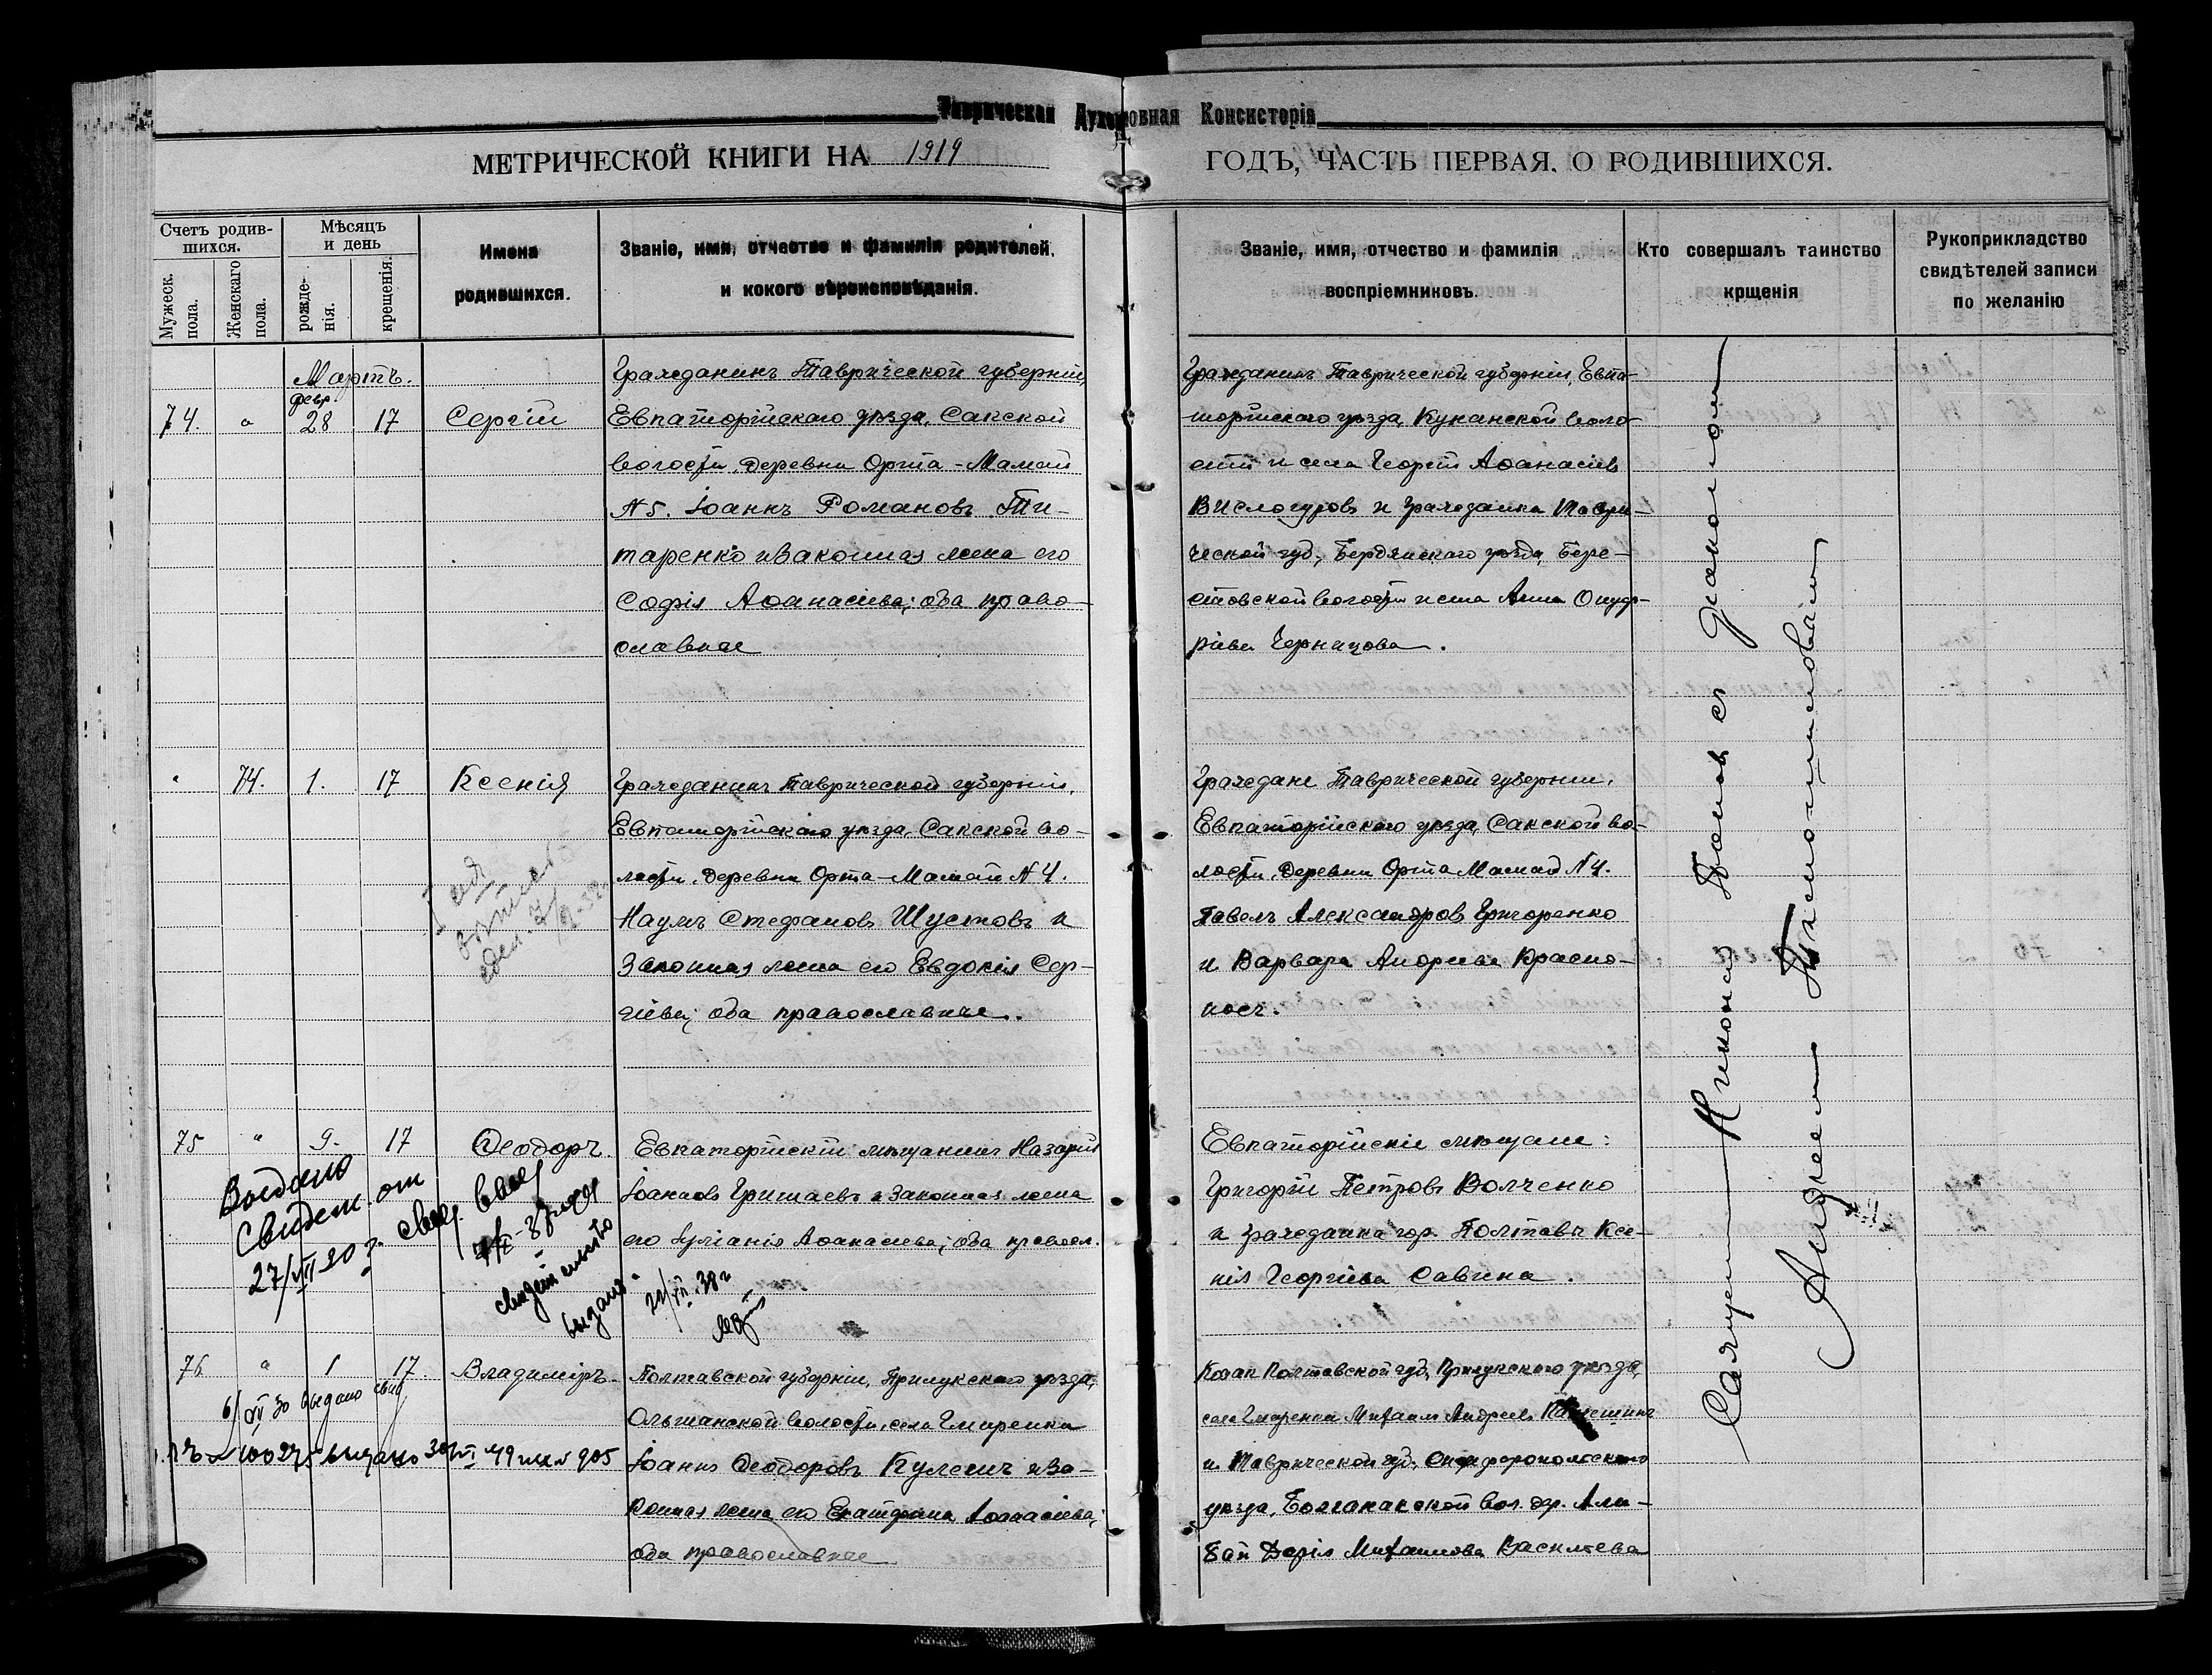 Таврическая Духовная Консисторія
МЕТРИЧЕСКОЙ КНИГИ НА 1919
ГОДЪ, ЧАСТЬ ПЕРВАЯ, О РОДИВШИХСЯ.
Счетъ родив-
шихся.
Мужеск.
пола.
Женскаго
пола.
Мѣсяцъ
и день
рожде-
нія.
крещенія.
Имена
родившихся.
Званіе, имя, отчество и фамилія родителей,
и кокого вѣроисповѣданія.
Званіе, имя, отчество и фамилія
воспріемниковъ.
Кто совершалъ таинство
крщенія
Рукоприкладство
свидѣтелей записи
по желанію
Мартъ.
февр.
74. " 28 17 Сергій
Гражданинъ Таврической губерніи,
Евпаторійскаго уѣзда, Сакской
волости, деревни Орта-Мамай
№ 5. Іоаннъ Романовъ Ти-
таренко и законная жена его
Софія Аѳанасіева; оба право-
славные
Гражданинъ Таврической губерніи, Евпа-
торійскаго уѣзда, Кунанской воло-
сти и села Георгій Аѳанасіевъ
Вислогузовъ и гражданка Таври-
ческой губ., Бердянскаго уѣзда, Бере-
стовской волости и села Анна Онуф-
ріева Черницова.
" 74. 1. 17 Ксенія
Гражданинъ Таврической губерніи,
Евпаторійскаго уѣзда, Сакской во-
лости, деревни Орта-Мамай № 4.
Наумъ Стефановъ Шустовъ и
законная жена его Евдокія Сер-
гіева; оба православные.
Граждане Таврической губерніи,
Евпаторійскаго уѣзда, Сакской во-
лости, деревни Орта Мамай № 4.
Павелъ Александровъ Григоренко
и Варвара Андреева Красно-
носъ.
75 " 9. 17 Ѳеодоръ.
Евпаторійскій мѣщанинъ Назарій
Іоанновъ Гришаевъ и законная жена
его Іуліанія Аѳанасіева; оба правосл.
Евпаторійскіе мѣщане:
Григорій Петровъ Волченко
и гражданка гор. Полтавы Ксе-
нія Георгіева Савина.
Выдано
Свидет. от
27/VII 20 г.
свидетельство
выдано
21/VII-38 г
76 " 1 17. Владиміръ.
Полтавской губерніи, Прилукскаго уѣзда,
Ольшанской волости, села Гмиренки
Іоаннъ Ѳеодоровъ Кулешъ и за-
конная жена его Екатерина Аѳанасіева;
оба православные
Козак Полтавской губ., Прилукскаго уѣзда,
села Гмиренки Михаилъ Андреевъ
и Таврической губ., Симферопольскаго
уѣзда, Болганакской вол. дер. Али-
бай Дарія Михаилова Василіева
выдано свид
выдано 30/VI 49
Священник Никоноръ Поповъ съ діакономъ
Андреем